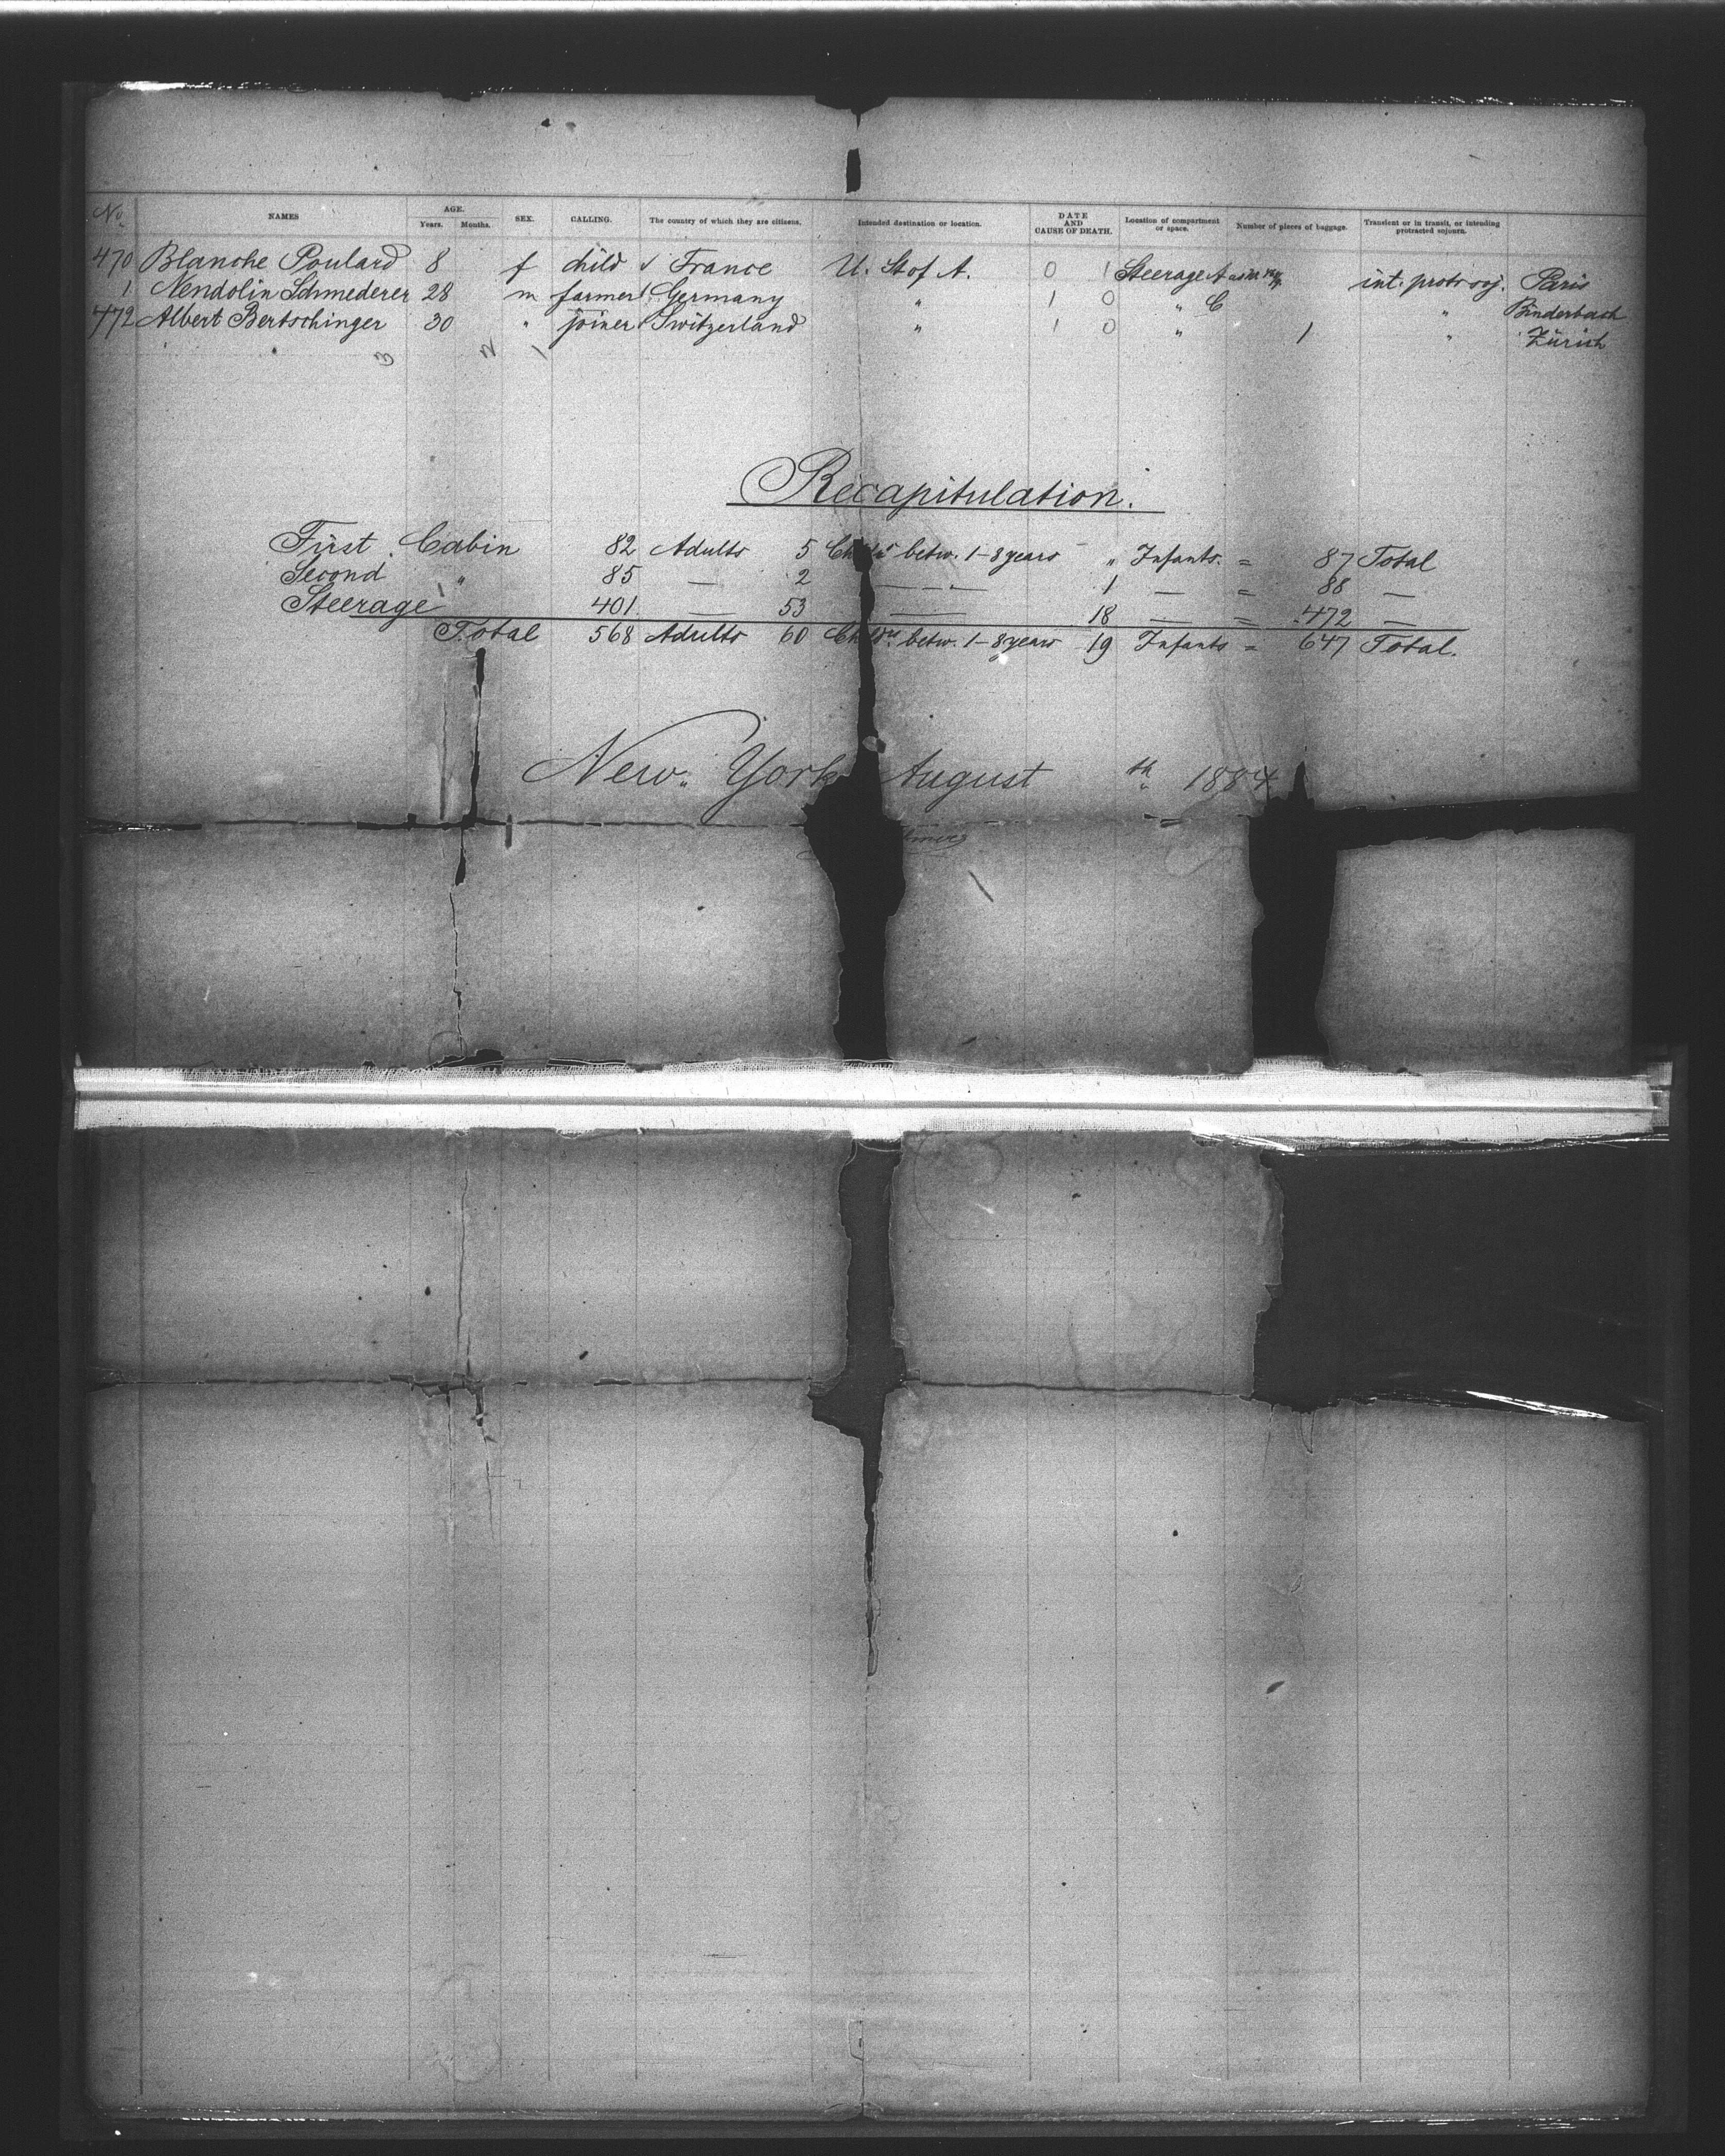 No. NAMES AGE. Years. Months. SEX. CALLING. The country of which they are citizens. Intended destination or location. DATE AND CAUSE OF DEATH. Location of compartment or space. Number of pieces of baggage. Transient or in transit, or intending protracted sojourn.
470 Blanche Poulard 8 f child √ France U. St of A. 0 1 Steerage int. protr soj. Paris
1 Nendolin Schmederer 28 m farmer Germany " 1 0 " C " Binderbach
472 Albert Bertschinger 30 " joiner Switzerland " 1 0 " 1 " Zürich
3 2 1
Recapitulation.
First Cabin 82 Adults 5 Child betw. 1-8 years " Infants. = 87 Total
Second " 85 — 2 — " — 1 — = 88 —
Steerage 401 — 53 — 18 — = 472 —
Total 568 Adults 60 Childn. betw. 1-8 years 19 Infants = 647 Total.
New York August th 1884